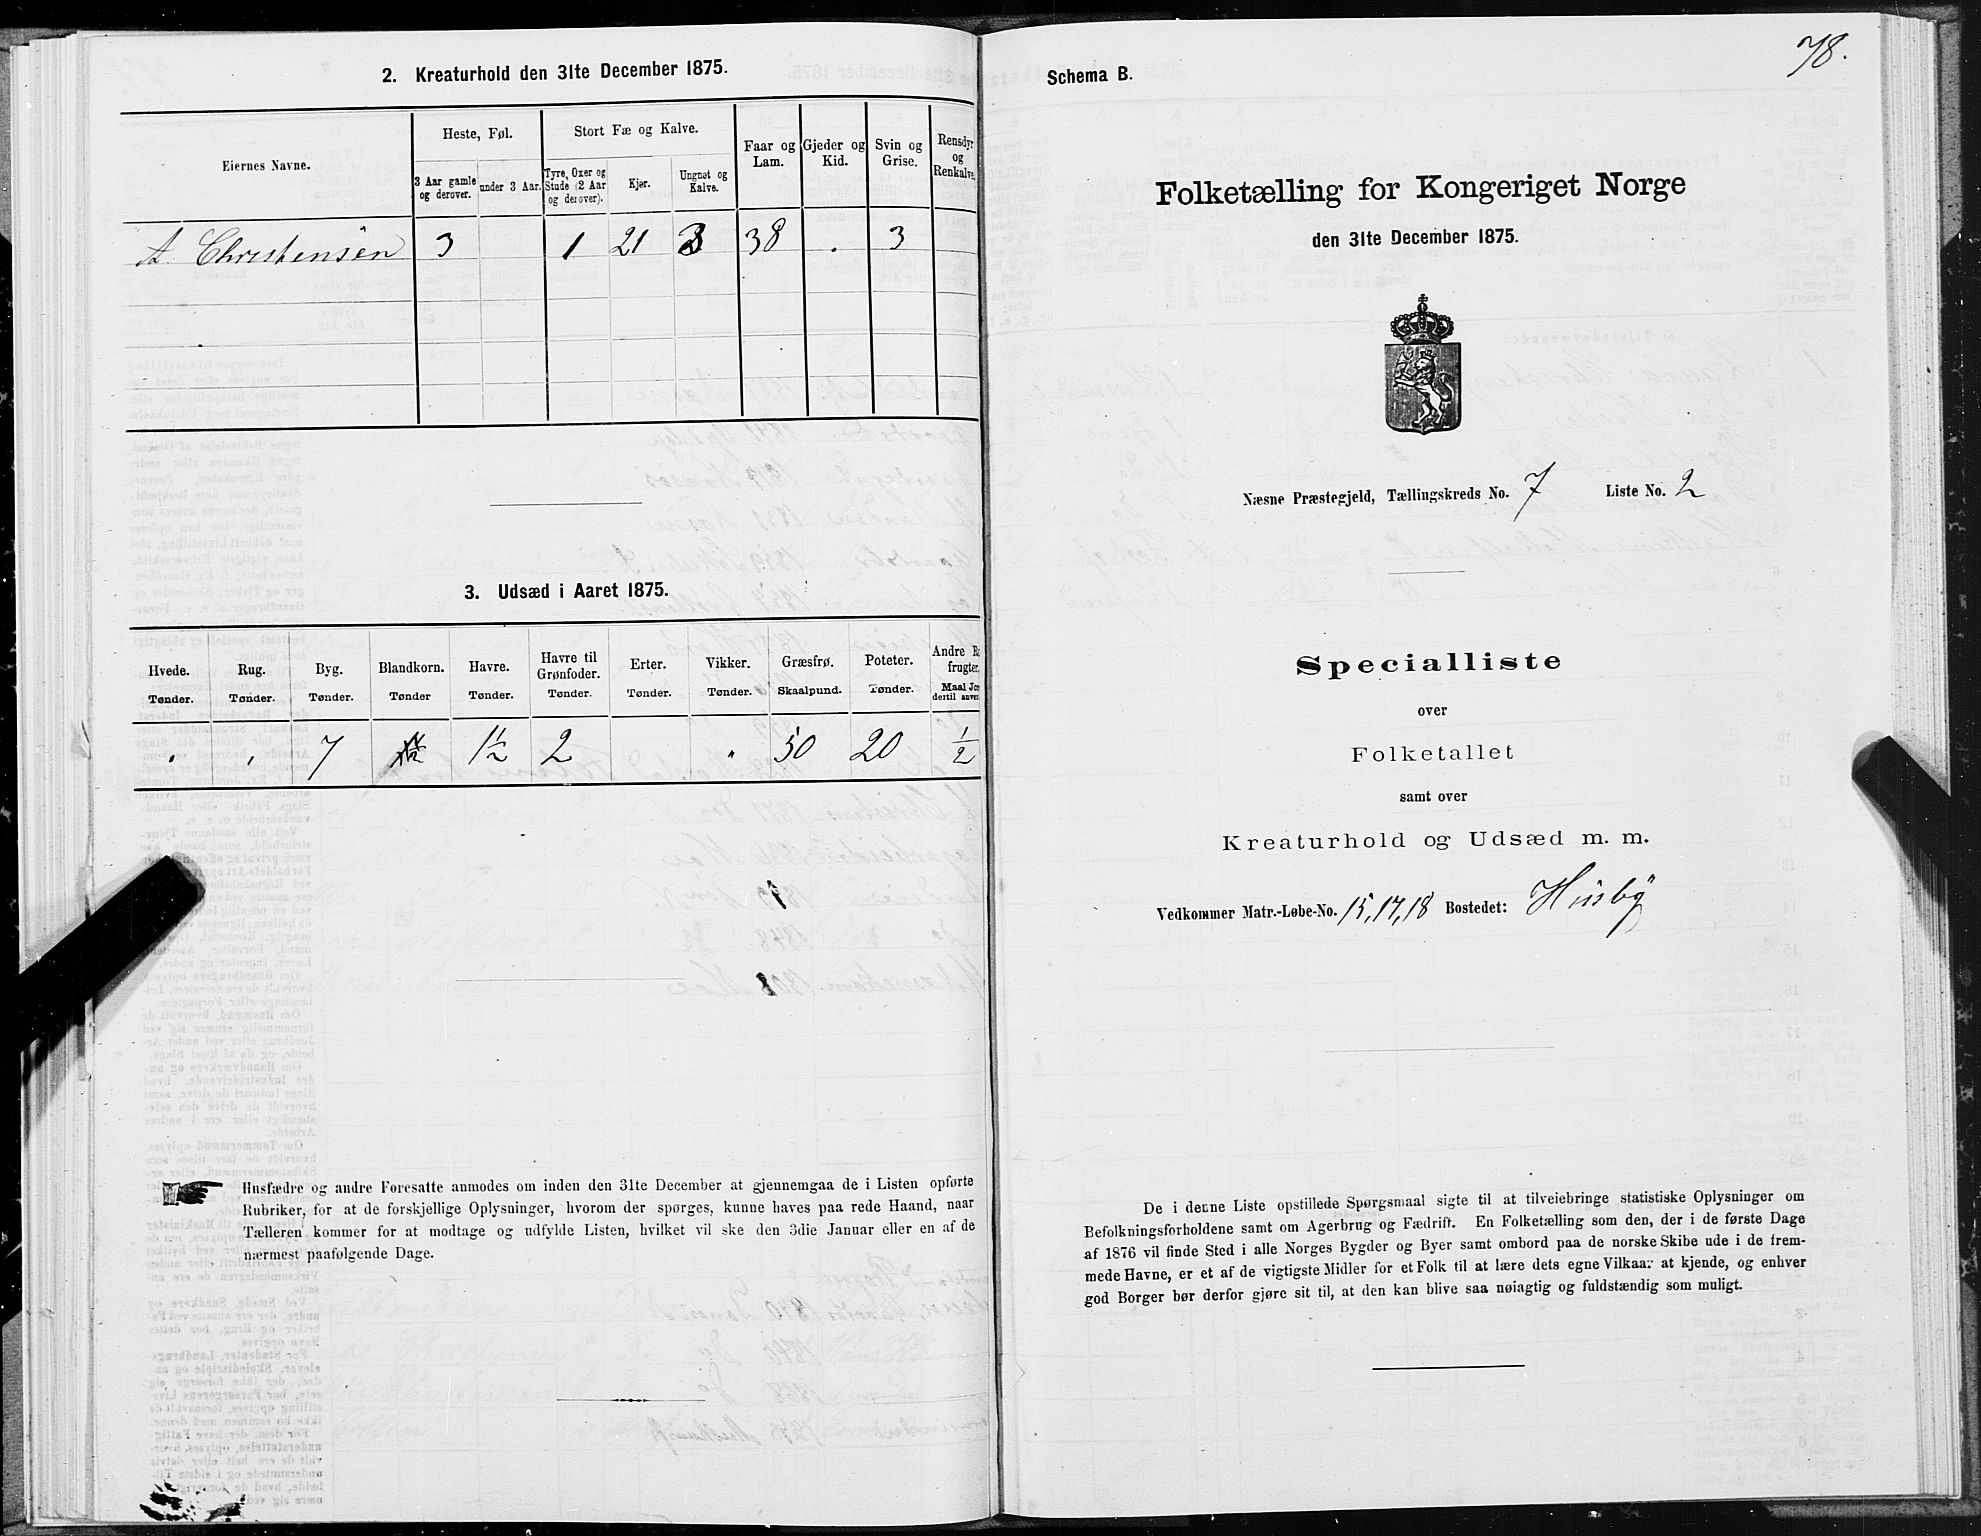 2. Kreaturhold den 31te December 1875.
Eiernes Navne.
Heste, Føl.
Stort Fæ og Kalve.
Faar og Lam.
Gjeder og Kid.
Svin og Grise.
Rensdyr og Renkalve.
3 Aar gamle og derover.
under 3 Aar.
Tyre, Oxer og Stude (2 Aar og derover).
Kjør.
Ungnøt og Kalve.
A. Christensen 3 1 21 3 38 . 3
3. Udsæd i Aaret 1875.
Hvede. Rug. Byg. Blandkorn. Havre. Havre til Grønfoder. Erter. Vikker. Græsfrø. Poteter. Andre R frugter.
Tønder. Tønder. Tønder. Tønder Tønder. Tønder. Tønder. Tønder. Skaalpund. Tønder. Maal Jor dertil anven
" " 7 1½ 2 " 50 20 1/2
Husfædre og andre Foresatte anmodes om inden den 31te December at gjennemgaa de i Listen opførte
Rubriker, for at de forskjellige Oplysninger, hvorom der spørges, kunne haves paa rede Haand, naar
Tælleren kommer for at modtage og udfylde Listen, hvilket vil ske den 3die Januar eller en af de
nærmest paafølgende Dage.
78.
Schema B.
Folketælling for Kongeriget Norge
den 31te December 1875.
Næsne Præstegjeld, Tællingskreds No. 7 Liste No. 2
Specialliste
over
Folketallet
samt over
Kreaturhold og Udsæd m. m.
Vedkommer Matr.-Løbe-No. 15, 17, 18 Bostedet: Husby
De i denne Liste opstillede Spørgsmaal sigte til at tilveiebringe statistiske Oplysninger om
Befolkningsforholdene samt om Agerbrug og Fædrift. En Folketælling som den, der i de første Dage
af 1876 vil finde Sted i alle Norges Bygder og Byer samt ombord paa de norske Skibe ude i de frem-
mede Havne, er et af de vigtigste Midler for et Folk til at lære dets egne Vilkaar at kjende, og enhver
god Borger bør derfor gjøre sit til, at den kan blive saa nøiagtig og fuldstændig som muligt.